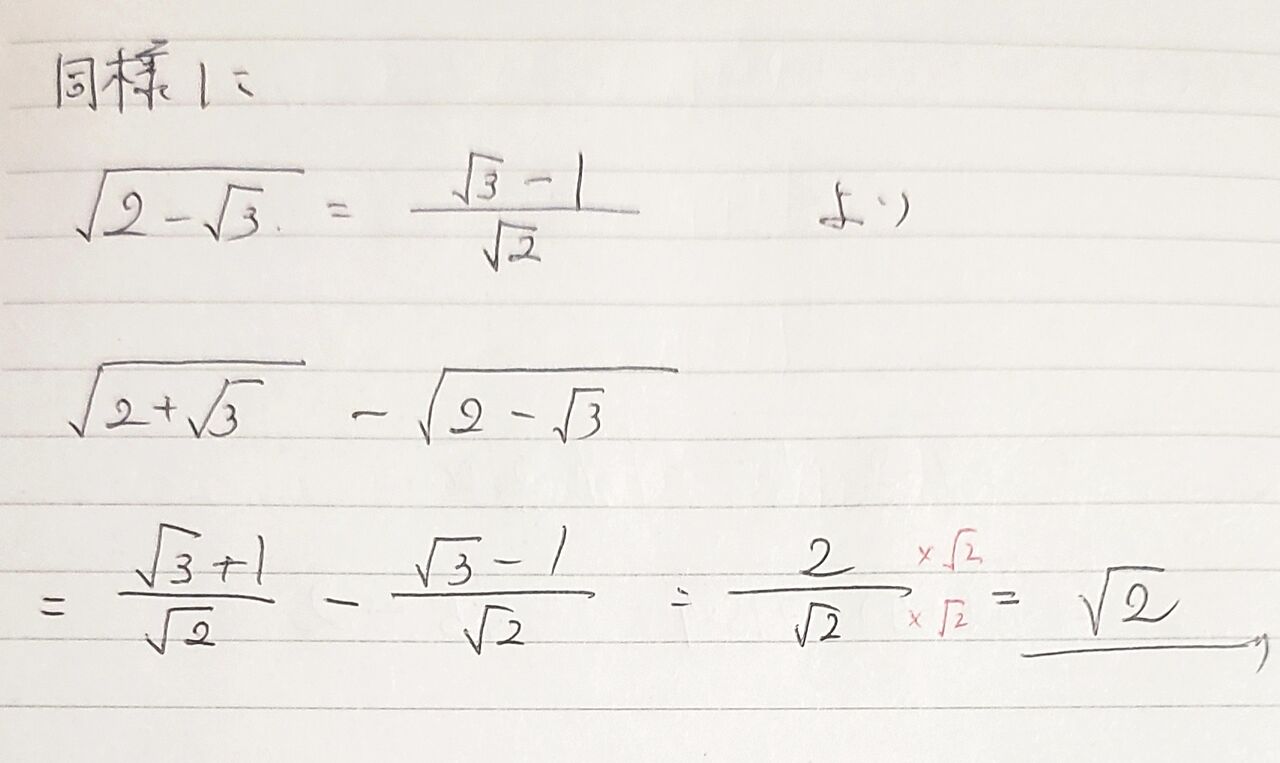 同様に
√(2-√3) = (√3-1)/√2 より
√(2+√3) - √(2-√3)
= (√3+1)/√2 - (√3-1)/√2 = 2/√2 ×√2/×√2 = √2